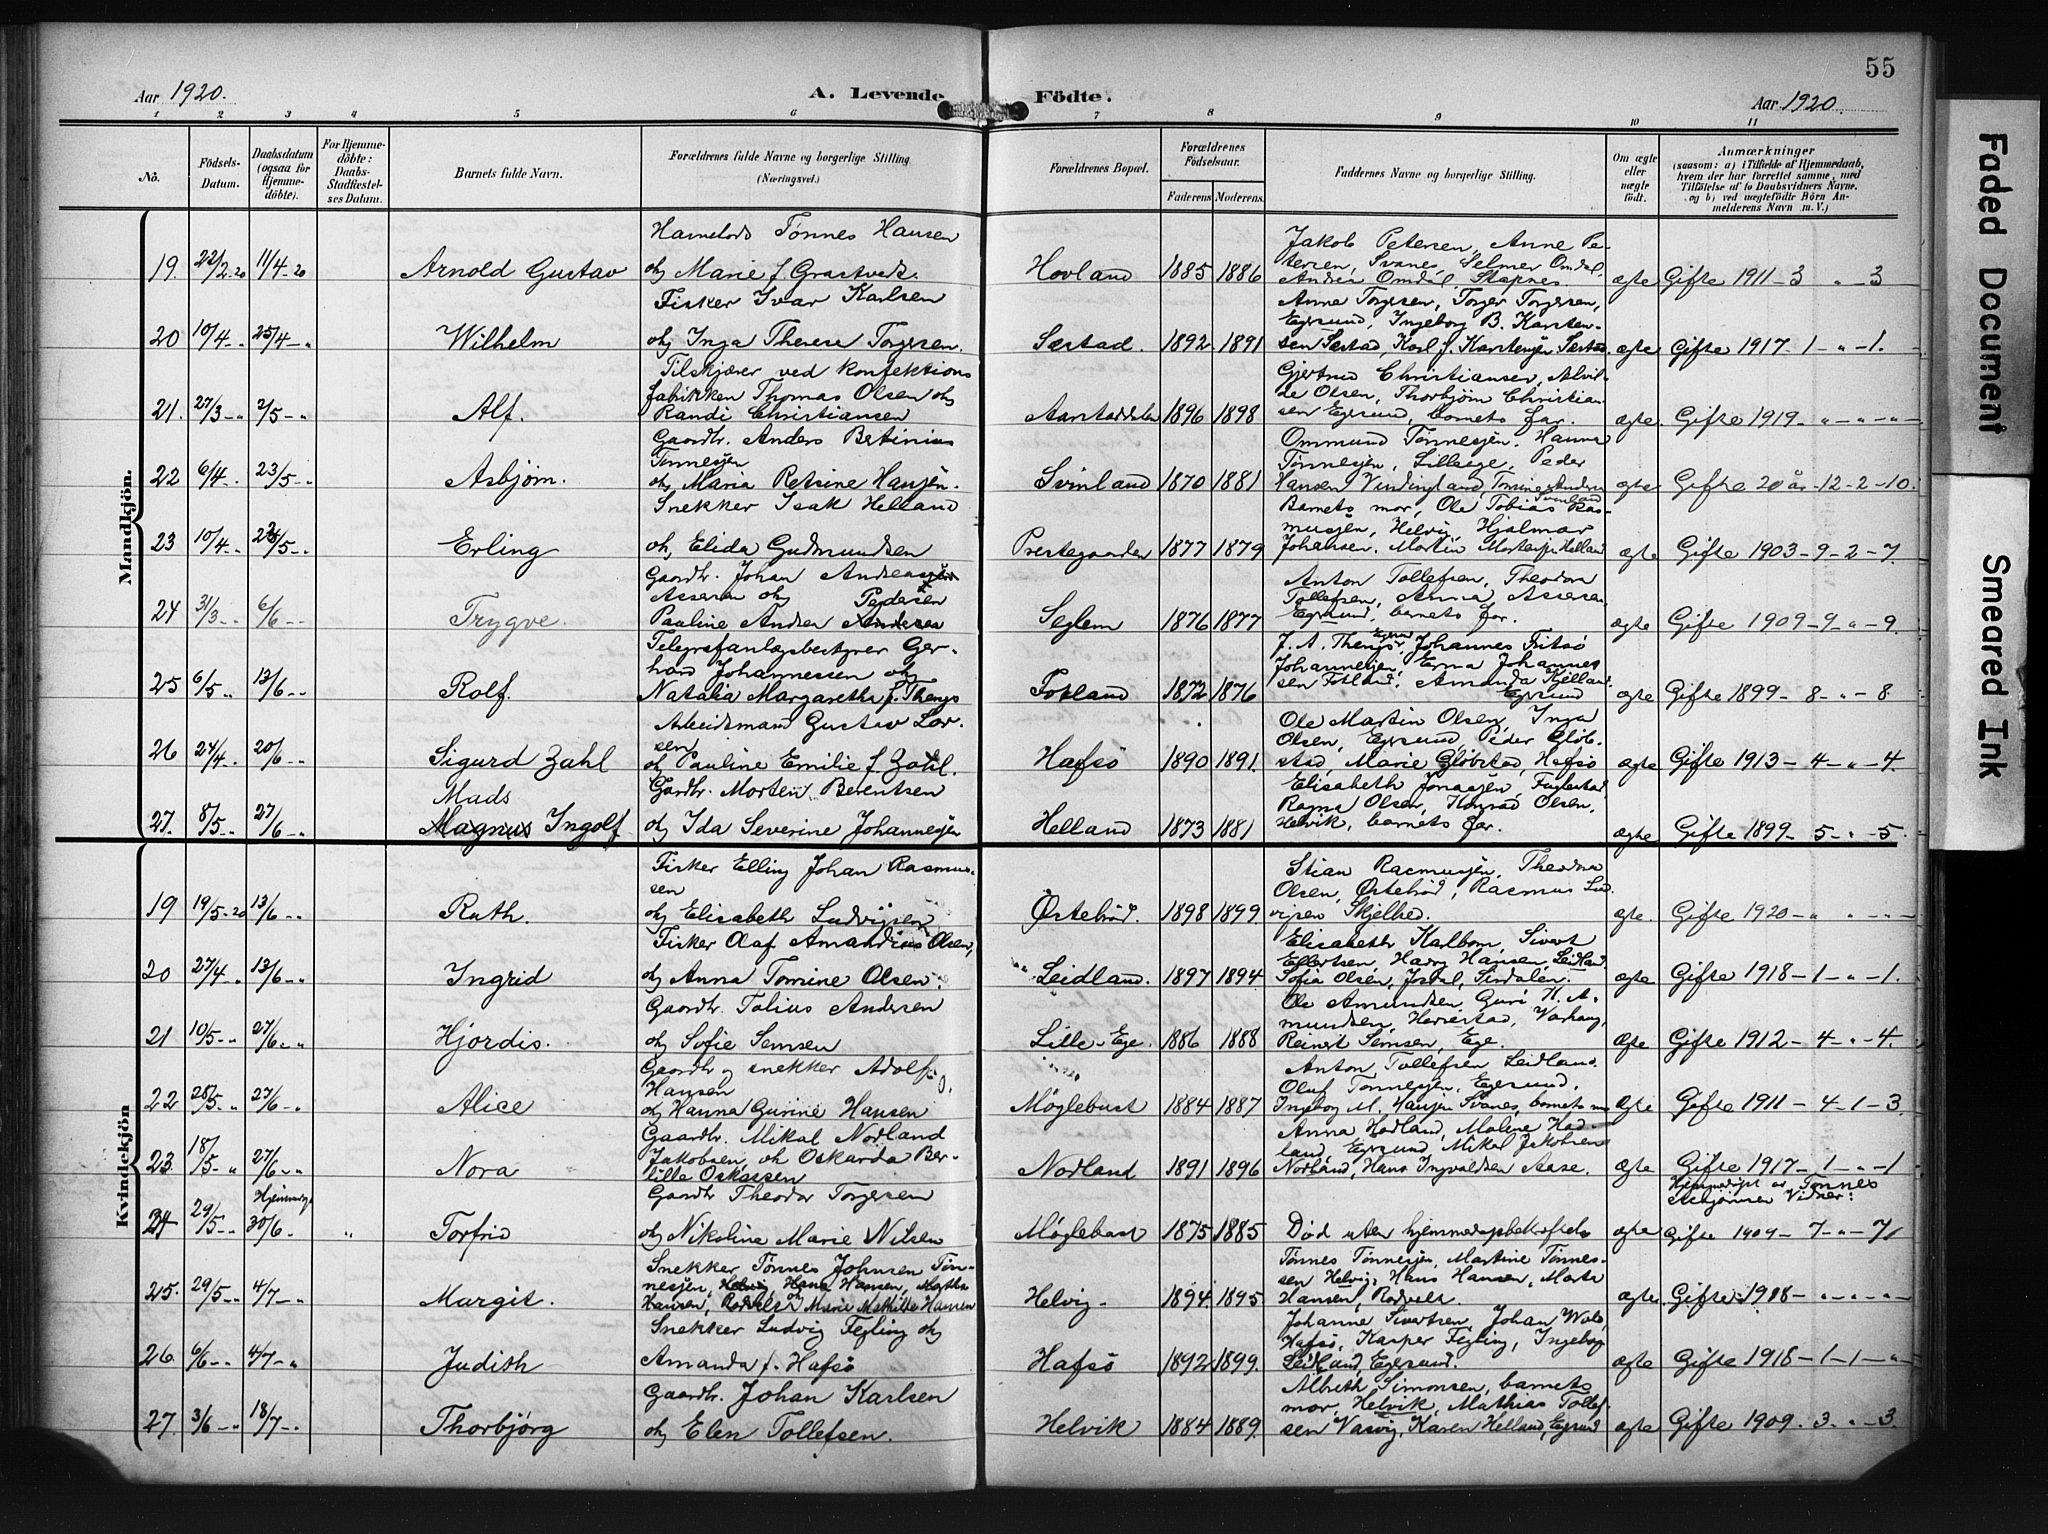 55
Aar 1920.
A. Levende
Födte.
Aar 1920
1 2 3 4 5 6 7 8 9 10 11
No.
Födsels-Datum.
Daabsdatum (ogsaa for Hjemme-döbte).
For Hjemme-döbte: Daabs-Stadfæstel-ses Datum.
Barnets fulde Navn.
Forældrenes fulde Navne og borgerlige Stilling.
(Næringsvei.)
Forældrenes Bopæl.
Forældrenes Födselsaar.
Faderens
Moderens
Faddernes Navne og borgerlige Stilling.
Om ægte eller uægte födt.
Anmærkninger
(saasom: a) i Tilfælde af Hjemmedaab, hvem der har forrettet samme, med Tilföielse af to Daabsvidners Navne, og b) ved uægtefödte Börn Anmelderens Navn m. V.)
Mandkjön.
19. 22/2-20 11/4-20 Arnold Gustav
Tønnes Hansen
og Marie f. Grastveit.
Hovland 1885 1886
Jakob Petersen, Anne Pe-
tersen, Svanes, Selmer Omdal,
Andrea Omdal, Stapnes
ægte Gifte 1911-3 " -3
20 10/4-" 25/4-" Wilhelm
Fisker Ivar Karlsen
og Inga Therese Torgersen.
Sæstad. 1892. 1891
Anne Torgersen, Torger Torgersen,
Egersund, Ingeborg B. Karsten-
sen Sæstad, Karl J. Karstensen Sæstad.
ægte Gifte 1917-1-"-1.
21. 27/3-" 2/5-" Alf.
Tilskjærer ved konfektions
fabrikken Thomas Olsen og
Randi Christiansen
Aarstaddalen 1896 1898
Gjertrud Christiansen, Alvil-
de Olsen, Thorbjørn Christian-
sen Egersund, barnets far.
ægte. Gifte 1919.-"-"-"-
22 6/4-" 23/5-" Asbjørn.
Gaardbr. Anders Bertinius
Tønnesen
og Maria Petrine Hansen.
Svinland 1870 1881
Ommund Tønnesen, Hanna
Tønnesen, Lilleege, Peder
Hansen
ægte Gifte 20 år-12-2-10.
23 10/4-" 23/5-" Erling
Snekker Isak Helland
og Elida Gudmundsen
Prestegaarden 1877 1879
Barnets mor, Ole Tobias Ras-
musen, Helvig, Hjalmar
Johansen. Martin Mortensen Helland
ægte Gifte 1903-9-2-7.
24 31/3-" 6/6-" Trygve.
Gaardbr. Johan Andreas
Asseren og Pedersen
Pauline Andrea
Seglem 1876 1877
Anton Tollefsen, Theodora
Tollefsen, Anna Asseren,
Egersund, barnets far.
ægte Gifte 1909-9-"-9.
25 6/5 " 13/6-" Rolf.
Telegrafanlægsbestyrer Ger-
hard Johannessen og
Natalia Margaretha f. Thengs
Fotland 1872 1876
J. A. Thengs Egersund, Johannes Fritsø
Johannesen, Erna Johannes-
sen Fotland, Amanda Kjelland
Egersund
ægte Gifte 1899-8-"-8
26 24/4. 20/6-" Sigurd Zahl
Arbeidsmand Gustav Lar-
sen
og Pauline Emilie f. Zahl.
Hafsø 1890 1891.
Ole Martin Olsen, Inga
Olsen, Egersund Peder Gløb-
stad, Marie Gløbstad, Hafsø
ægte Gifte 1913-4-"-4.
27. 8/5-" 27/6-" Mads
Magnus Ingolf
Gaardbr. Morten Berentsen
og Ida Severine Johannesen
Helland 1873 1881
Elisabeth Jonassen, Fuglestad,
Ragna Olsen, Konrad Olsen,
Helvik, barnets far.
ægte Gifte 1899-5-"-5.
Kvindekjön
19 19/5-20 13/6-" Ruth.
Fisker Elling Johan Rasmus-
sen
og Elisabeth Ludvigsen
Østebrød. 1898 1899.
Stian Rasmusen, Theodora
Olsen, Østebrød, Rasmus Lud-
vigsen Skjelbred.
ægte. Gifte 1920-"-"-"-
20 27/4-" 13/6-" Ingrid
Fisker Olaf Amandius Olsen,
og Anna Tomine Olsen.
Leidland. 1897 1894
Elisabeth Karlbom, Sivert
Ellertsen, Harry Hansen Leidland.
Sofia Olsen, Jøssdal, Sirdalen.
ægte Gifte 1918-1-"-1.
21 10/5-" 27/6-" Hjørdis.
Gaardbr. Tobias Andersen
og Sofie Semsen
Lille-Ege. 1886 1888
Ole Amundsen, Guri H. A-
mundsen, Hariestad, Varhaug,
Reinert Semsen, Ege.
ægte Gifte 1912-4-"-4.
22 28/5-" 27/6-" Alice
Gaardbr og snekker Adolf
Hansen
og Hanna Gurine Hansen
Møglebust 1884 1887
Anton Tollefsen Leidland
Oluf Tønnesen, Egersund.
Ingeborg M. Hansen Svanes, barnets mor
ægte Gifte 1911-4-1-3.
23. 18/5-" 27/6-" Nora
Gaardbr. Mikal Nodland
Jakobsen, og Oskarda Ber-
tille Oskarsen
Nodland 1891 1896
Anna Hadland, Malene Had-
land, Egersund, Mikal Jakobsen
Nodland, Hans Ingvaldsen Aase.
ægte Gifte 1917-1-"-1
24 29/5-" Hjemmedøpt 30/6. " Torfrid
Gaardbr Theodor Torgersen
og Nikoline Marie Nilsen
Møglebust 1875 1885
Død uten hjemmedaapsbekræftelse
Hjemmedøpt av Tønnes
Vidner:
ægte Gifte 1909-7-"-7
25. 29/5-" 4/7-" Margit.
Snekker Tønnes Johnsen Tøn-
nesen, Helvig, Hans Hansen, Martha
Hansen, Rodvelt og Marie Mathilde Hansen
Helvig- 1894. 1895
Tønnes Tønnesen, Martine Tønnes-
sen Helvig, Hans Hansen, Marta
Hansen, Rodvelt.
ægte. Gifte 1918-"-"-"-
26. 6/6-" 4/7-" Judith
Snekker Ludvig Fegling og
Amanda f. Hafsø
Hafsø 1892 1899.
Johanne Sivertsen, Johan
Hafsø, Kasper Fegling, Ingeborg
Leidland, Egersund.
ægte Gifte 1918-1-1-"-
27. 3/6-" 18/7-" Thorbjørg
Gaardbr. Johan Karlsen
og Elen Tollefsen.
Helvik 1884 1889.
Albreth Simonsen, barnets
mor, Helvik, Mathias Tollef-
sen Vasvig, Karen Helland, Egersund
ægte Gifte 1909.-3.-"-3.
Faded Document
Smeared Ink